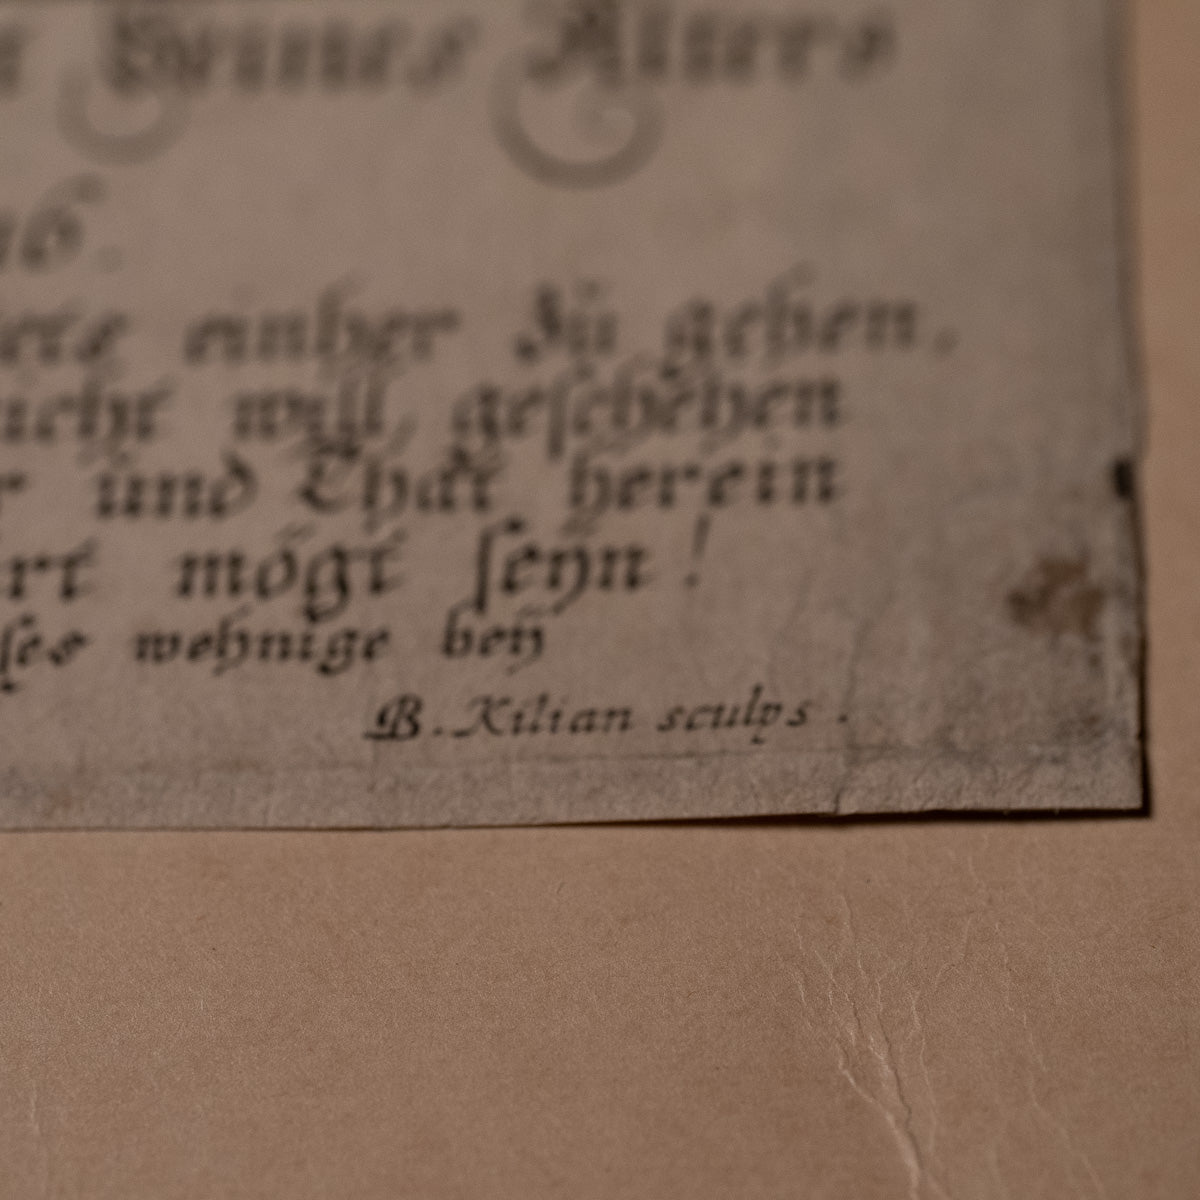 Seines Alters
6.
einher zu gehen,
will, geschehen
ünd That herein
mögt seÿn!
wehnige beÿ
B. Kilian sculps.